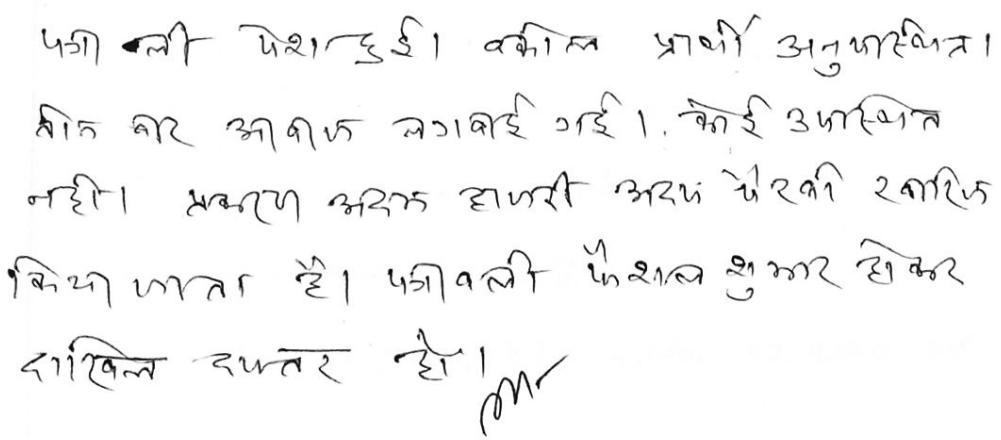 पत्रावली पेश हुई। वकील प्रार्थी अनुपस्थित।
तीन बार आवाज लगवाई गई। कोई उपस्थित
नहीं। प्रकरण अदम हाजरी अदम पैरवी खारिज
किया जाता है। पत्रावली फैशल शुमार होकर
दाखिल दफ्तर हो।